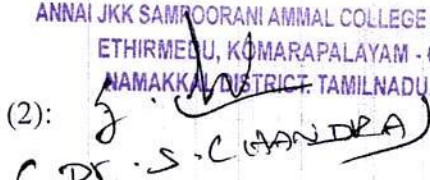 ANNAI JKK SAMPOORANI AMMAL COLLEGE
ETHIRMEDU, KOMARAPALAYAM -
NAMAKKAL DISTRICT. TAMILNADU
(2):
(Dr. S. CHANDRA)